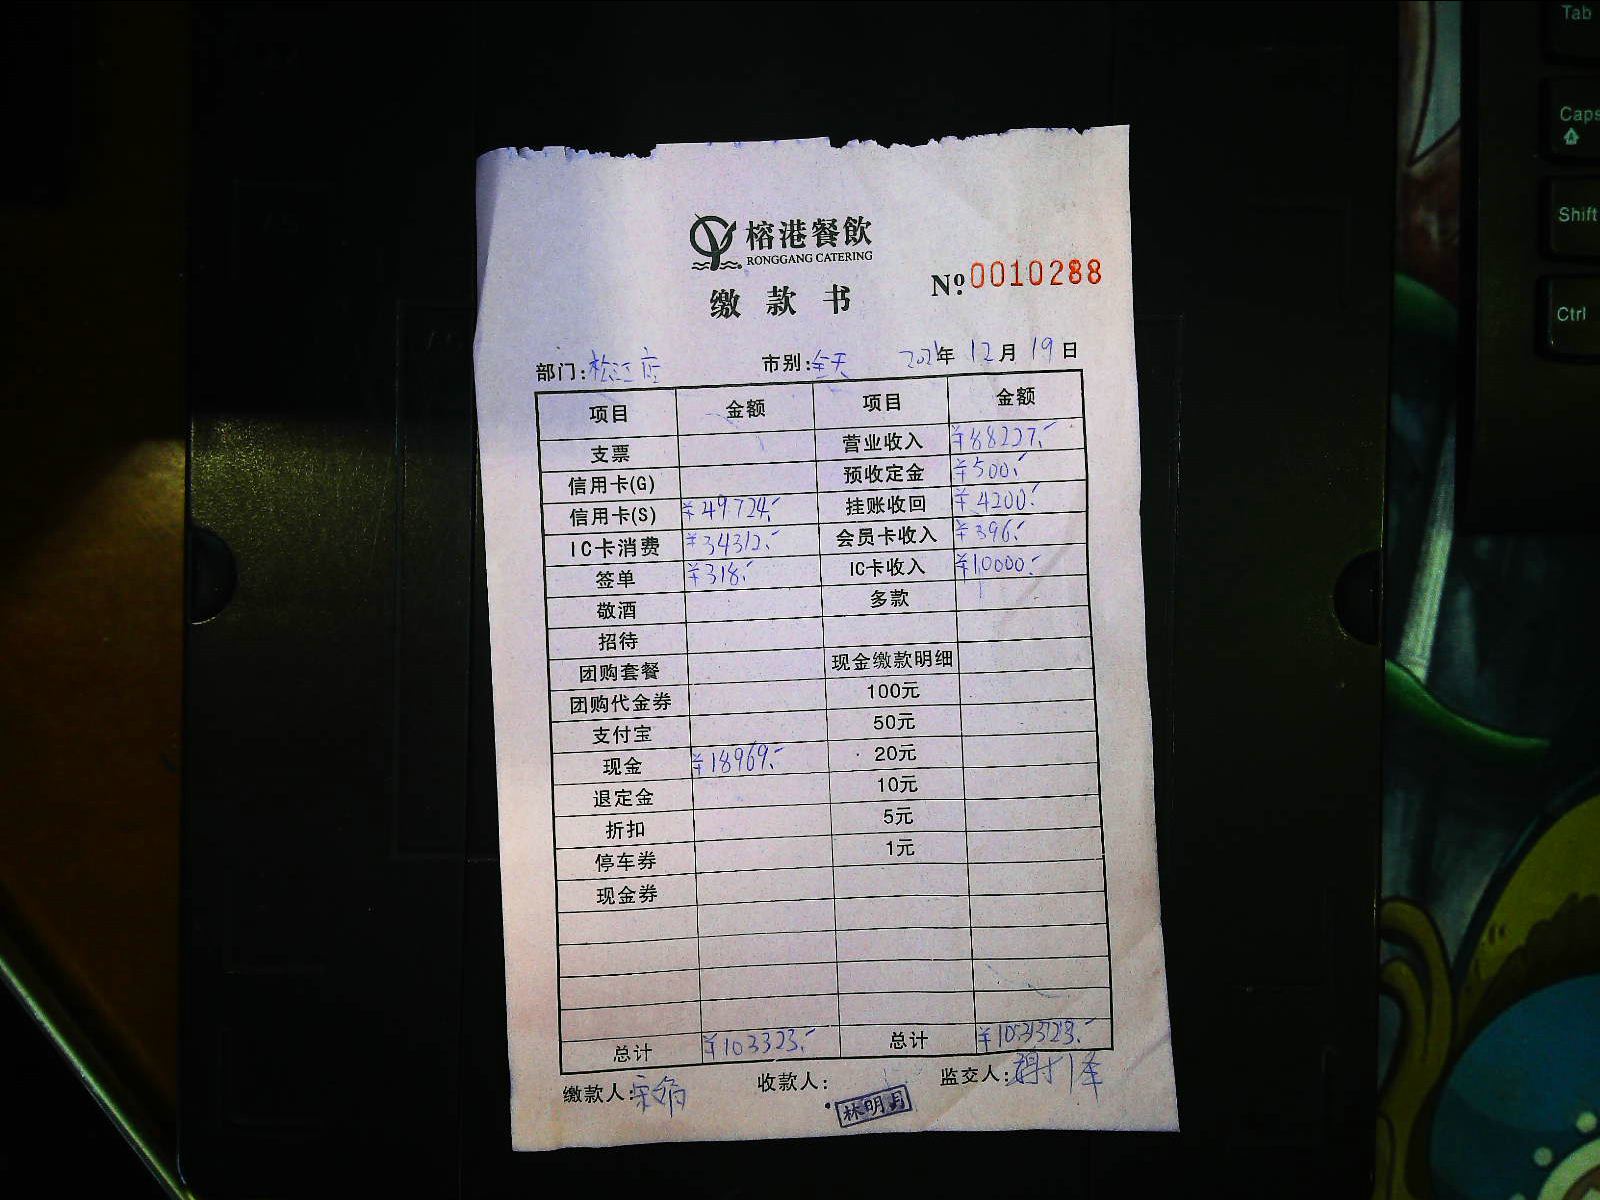 榕港餐飲
RONGGANG CATERING
缴款书
№ 0010288
部门:松江店 市别:全天 2021年12月19日
项目 金额 项目 金额
支票 营业收入 ¥88227.-
信用卡(G) 预收定金 ¥500.-
信用卡(S) ¥49724.- 挂账收回 ¥4200.-
IC卡消费 ¥34312.- 会员卡收入 ¥396.-
签单 ¥318.- IC卡收入 ¥10000.-
敬酒 多款
招待
团购套餐 现金缴款明细
团购代金券 100元
支付宝 50元
现金 ¥18969.- 20元
退定金 10元
折扣 5元
停车券 1元
现金券
总计 ¥103323.- 总计 ¥103323.-
缴款人: 收款人: 监交人:
林明月
Tab
Caps
Shift
Ctrl